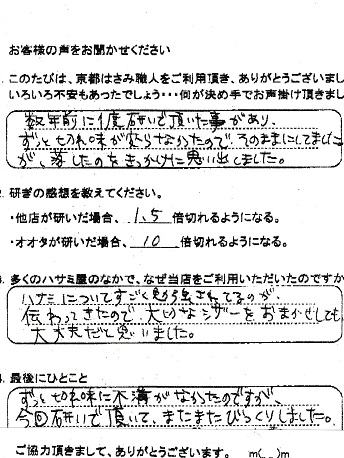 お客様の声をお聞かせください
.このたびは、京都はさみ職人をご利用頂き、ありがとうございまし
いろいろ不安もあったでしょう・・・何が決め手でお声掛け頂きまし
数年前に1度研いで頂いた事があり、
ずっと切れ味が変らなかったので、そのままにしてました
が、落したのをきっかけに思い出しました。
2. 研ぎの感想を教えてください。
・他店が研いだ場合、 1.5 倍切れるようになる。
・オオタが研いだ場合、 10 倍切れるようになる。
3. 多くのハサミ屋のなかで、なぜ当店をご利用いただいたのですか
ハサミについてすごく勉強されてるのが、
伝わってきたので、大切なシザーをおまかせしても
大丈夫だと思いました。
4. 最後にひとこと
ずっと切れ味に不満がなかったのですが、
今回研いで頂いて、またまたびっくりしました。
ご協力頂きまして、ありがとうございます。 m(__)m